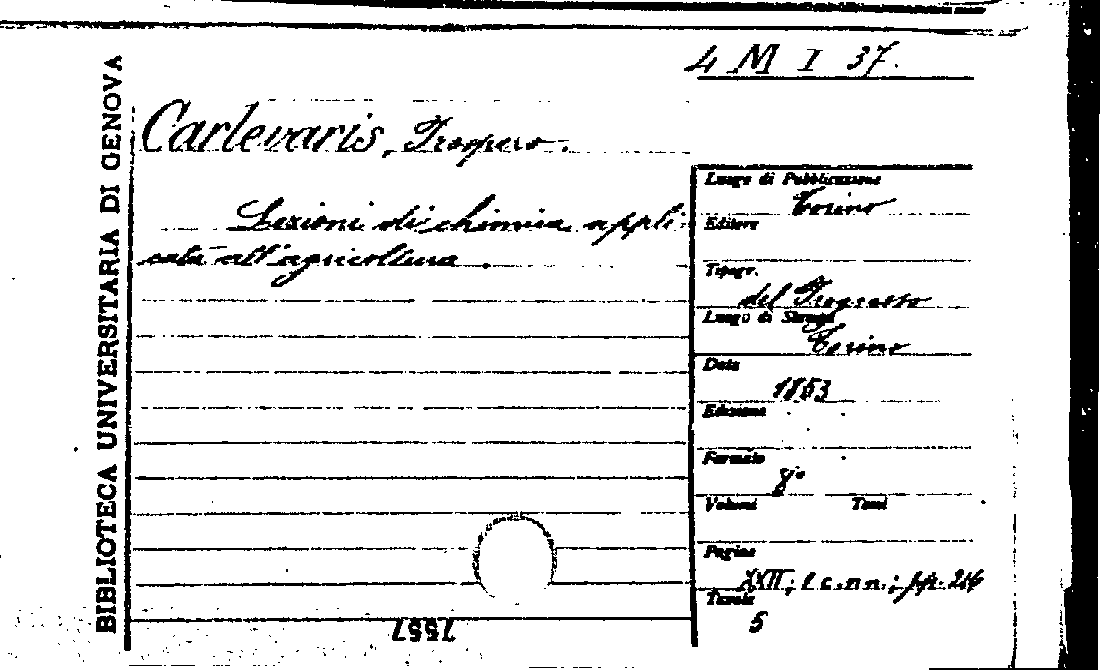 4 M I 37.
BIBLIOTECA UNIVERSITARIA DI GENOVA
Carlevaris, Prospero.
Lezioni di chimica appli-
cata all'agricoltura.
Luogo di Pubblicazione
Torino
Editore
Tipogr.
del Progresso
Luogo di Stampa
Torino
Data
1853
Edizione
Formato
8°
Volumi Tomi
Pagine
XXII; 1 c.n.n.; pp. 216
Tavole
5
7557